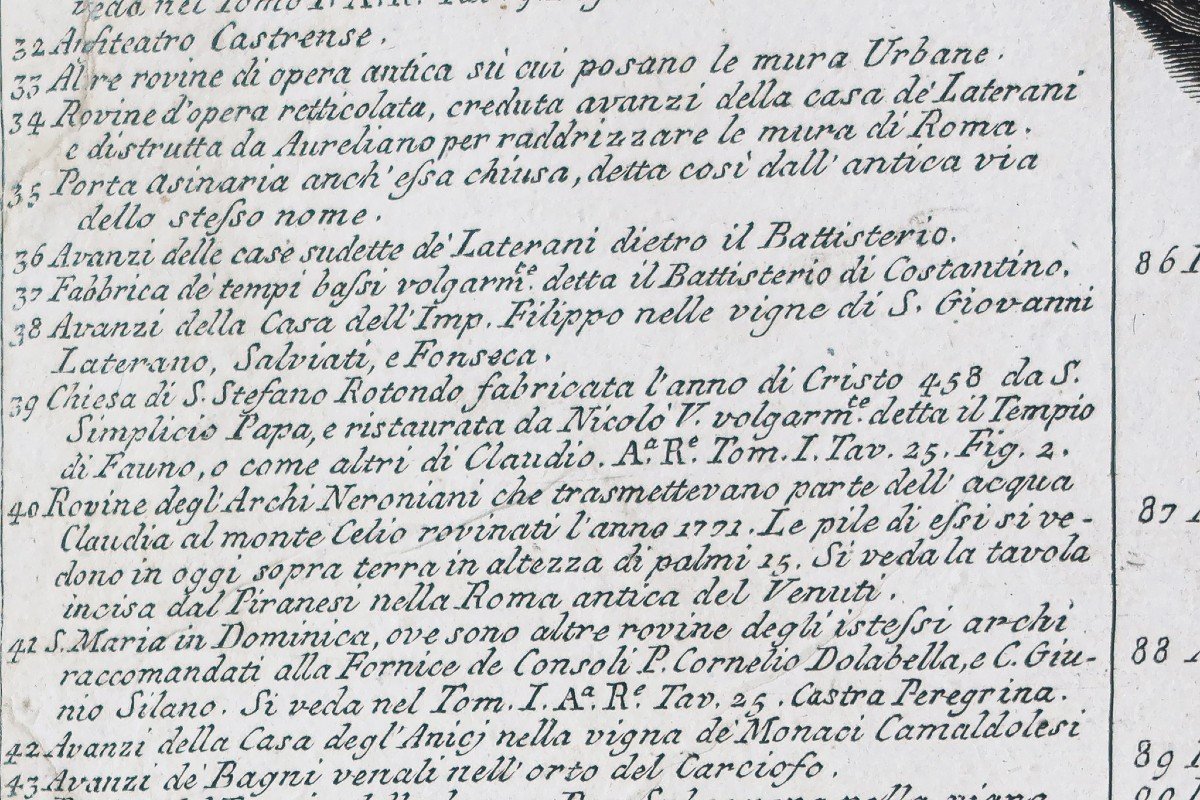 veda nel Tomo I. A. R.
32 Anfiteatro Castrense.
33 Altre rovine di opera antica sù cui posano le mura Urbane.
34 Rovine d'opera retticolata, creduta avanzi della casa de' Laterani
e distrutta da Aureliano per raddrizzare le mura di Roma.
35 Porta asinaria anch' eſsa chiusa, detta così dall' antica via
dello steſso nome.
36 Avanzi delle case sudette de' Laterani dietro il Battisterio.
37 Fabbrica de' tempi baſsi volgarm.te detta il Battisterio di Costantino.
38 Avanzi della Casa dell' Imp. Filippo nelle vigne di S. Giovanni
Laterano, Salviati, e Fonseca.
39 Chiesa di S. Stefano Rotondo fabricata l'anno di Cristo 458 da S.
Simplicio Papa, e ristaurata da Nicolò V. volgarm.te detta il Tempio
di Fauno, o come altri di Claudio. A.a R.e Tom. I. Tav. 25. Fig. 2.
40 Rovine degl' Archi Neroniani che trasmettevano parte dell' acqua
Claudia al monte Celio rovinati l'anno 1771. Le pile di eſsi si ve-
dono in oggi sopra terra in altezza di palmi 15. Si veda la tavola
incisa dal Piranesi nella Roma antica del Venuti.
41 S. Maria in Dominica, ove sono altre rovine degli isteſsi archi
raccomandati alla Fornice de Consoli P. Cornelio Dolabella, e C. Giu-
nio Silano. Si veda nel Tom. I. A.a R.e Tav. 25. Castra Peregrina.
42 Avanzi della Casa degl' Anicj nella vigna de' Monaci Camaldolesi
43 Avanzi de' Bagni venali nell' orto del Carciofo.
nella vigna
86
87
88
89
90